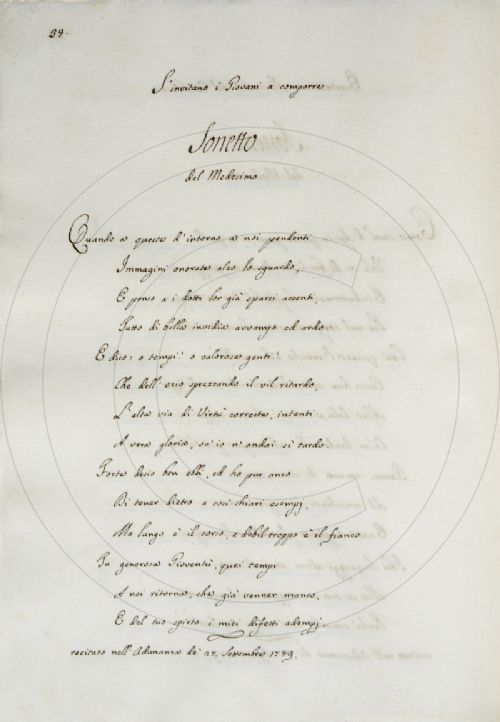 99.
S'invitano i Giovani a comporre
Sonetto
del Medesimo
Quando a queste d'intorno a noi pendenti
Immagini onorate alzo lo sguardo,
E penso a i dotti lor già sparsi accenti,
Tutto di bella invidia avvampo ed ardo.
E dico: o tempi! o valorose genti!
Che dell'ozio sprezzando il vil ritardo,
L'alta via di Virtù correste, intenti
A vera gloria, ov'io n'andai sì tardo.
Forte desio ben ebbi, ed ho pur anco
Di tener dietro a così chiari esempj,
Ma lungo è il corso, e debil troppo è il fianco.
Tu generosa Gioventù, quei tempi
A noi ritorna, che già venner manco,
E del tuo spirto i miei difetti adempj.
recitato nell'Adunanza de' 27. Settembre 1789.